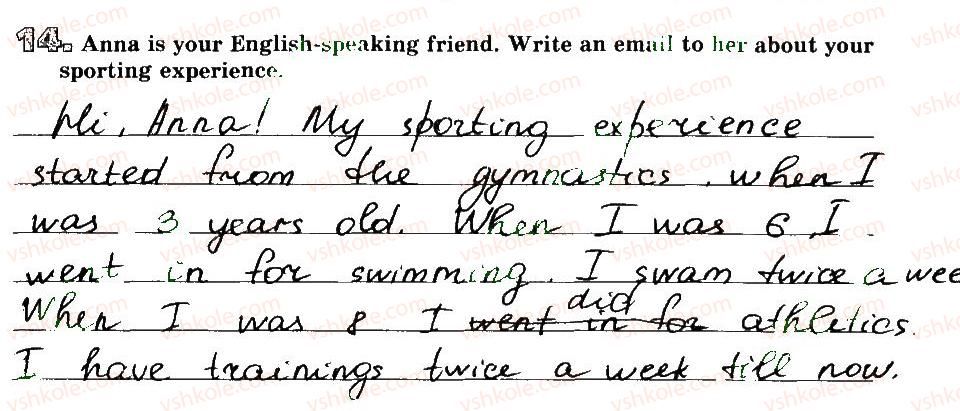 14. Anna is your English-speaking friend. Write an email to her about your
sporting experience.
Hi, Anna! My sporting experience
started from the gymnastics, when I
was 3 years old. When I was 6, I
went in for swimming. I swam twice a wee
did
When I was 8 I went in for athletics.
I have trainings twice a week till now.